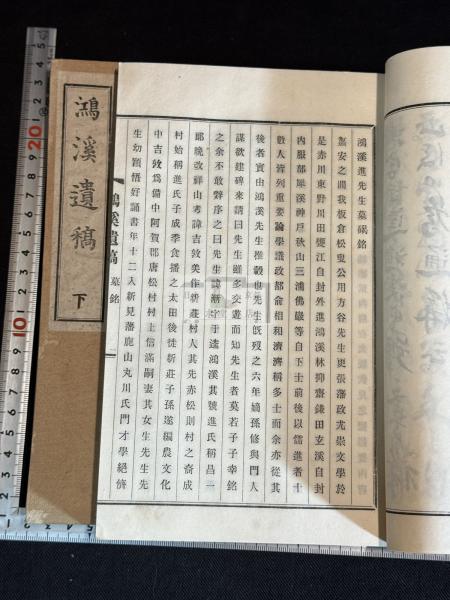 鴻溪遺稿 下
鴻溪進先生墓碣銘
嘉安之間我板倉松叟公用方谷先生更張藩政尤崇文學於
是赤川東野川田甕江自封外進鴻溪林抑齋鎌田玄溪自封
內服部犀溪神戶秋山三浦佛巖等自下士前後以儒進者十
數人皆列重要論學議政都俞相和濟濟稱多士而余亦從其
後者實由鴻溪先生推轂也先生旣歿之六年嫡孫修與門人
謀欲建碑來請曰先生雖多交遊而知先生者莫若子子幸銘
之余不敢辭序之曰先生諱漸字于逵鴻溪其號進氏稱昌一
郎晩改祥山考諱吉敦美作新莊村人其先赤松則村之裔成
村始稱進氏子成季食播之太田後徙新莊子孫遂編農文化
中吉敦爲備中阿賀郡唐松村村上信滿嗣妻其女生先生先
生幼穎悟好誦書年十二入新見藩鹿山丸川氏門才學絕儕
鴻溪遺稿 墓銘 一